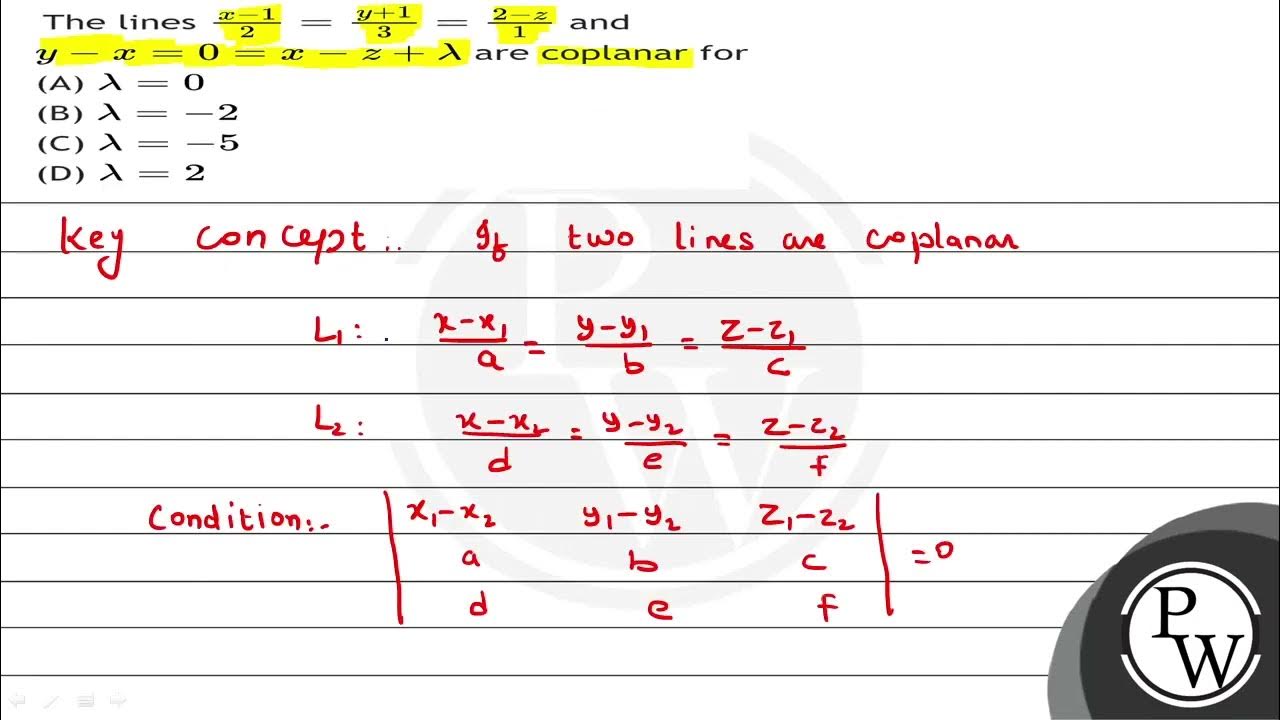 The lines (x−1)/2 = (y+1)/3 = (2−z)/1 and
y − x = 0 = x − z + λ are coplanar for
(A) λ = 0
(B) λ = −2
(C) λ = −5
(D) λ = 2
Key concept:. If two lines are coplanar
L₁: (x−x₁)/a = (y−y₁)/b = (z−z₁)/c
L₂: (x−x₂)/d = (y−y₂)/e = (z−z₂)/f
Condition:- | x₁−x₂ y₁−y₂ z₁−z₂ |
| a b c | = 0
| d e f |
PW
PW